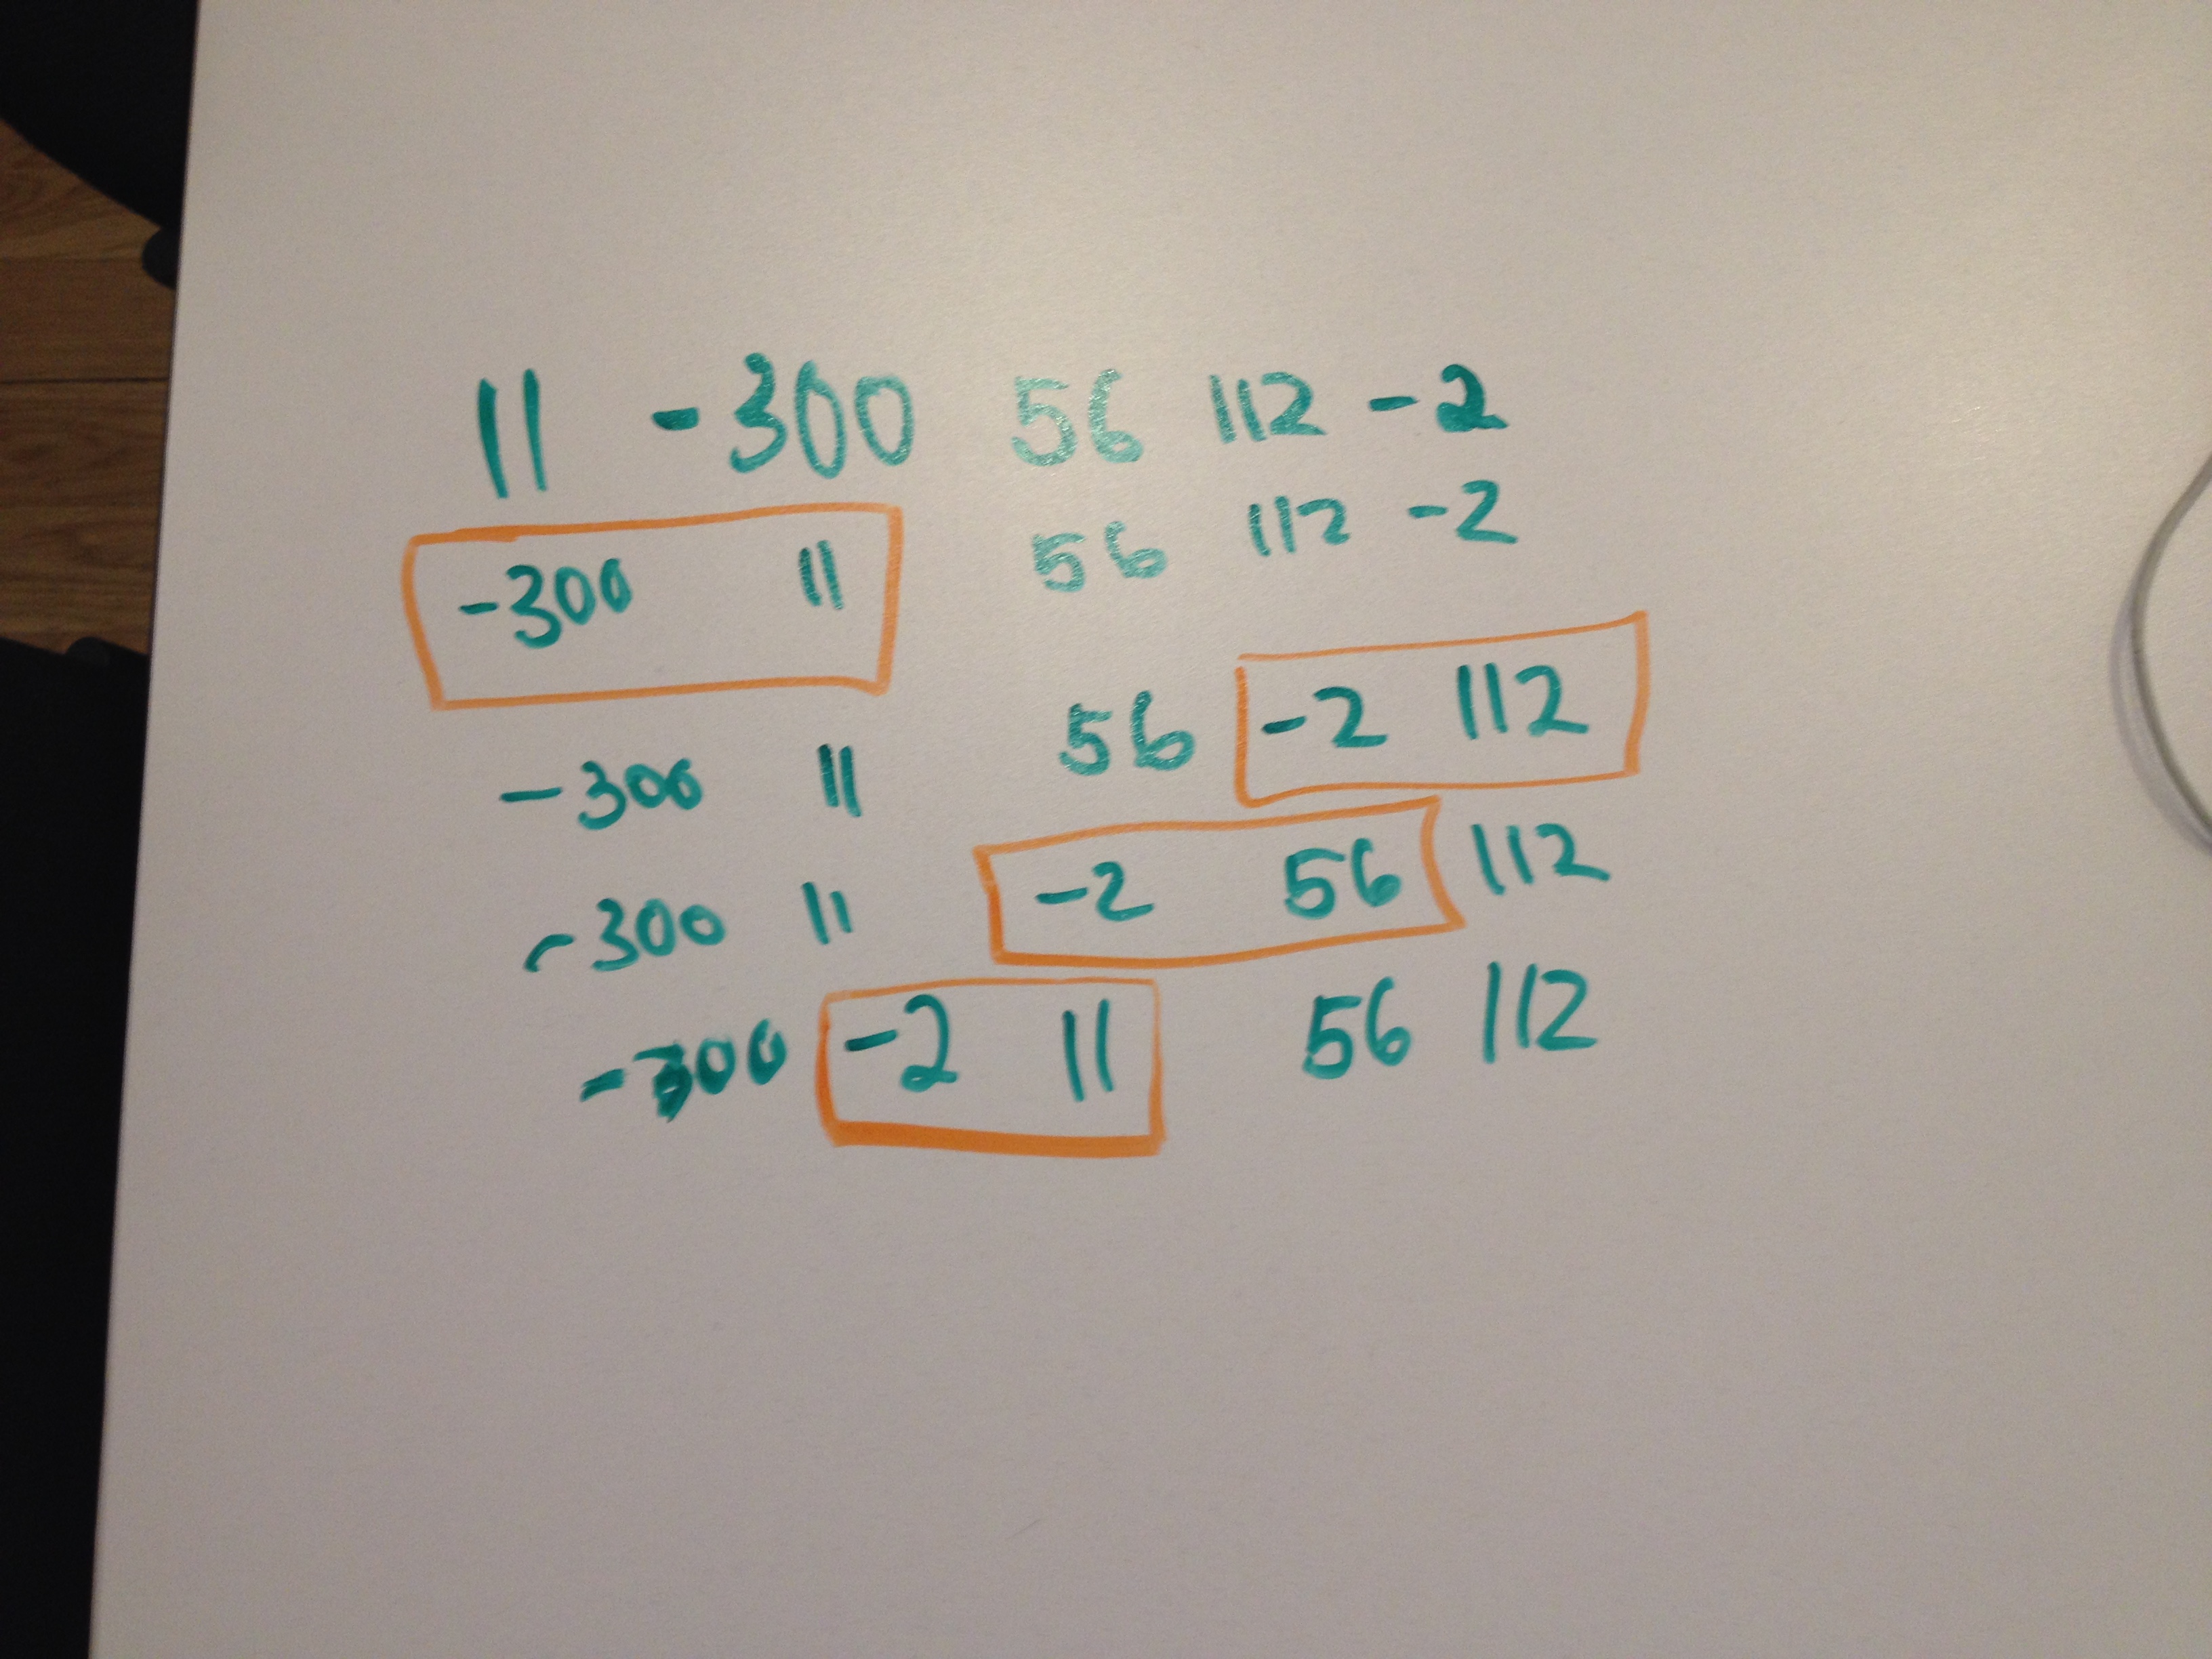 11 -300 56 112 -2
-300 11 56 112 -2
-300 11 56 -2 112
-300 11 -2 56 112
-300 -2 11 56 112